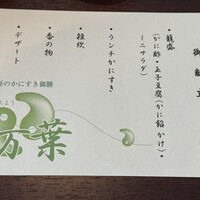 御献立
・籠盛
(かに酢・玉子豆腐(かに餡かけ)・
ミニサラダ)
・ランチかにすき
・雑炊
・香の物
・デザート
昼のかにすき御膳
万葉